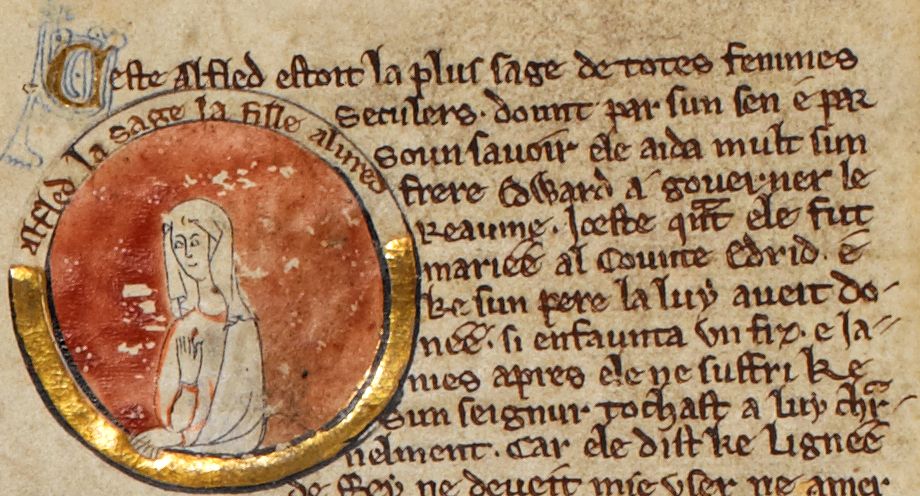 Ceste Alfled estoit la plus sage de totes femmes
alfled la sage la fille alured
seculers. dount par sun sen e par
soun savoir ele aida mult sun
frere Edward a governer le
reaume. Iceste qant ele fut
mariee al Counte Edrid. e
ke sun pere la luy aveit do-
nee. si enfaunta un fiz. e ja-
mes apres ele ne suffri ke
sun seignur tochast a luy char-
nelment. Car ele dist ke lignee
de Rey ne deveit mie user ne amer